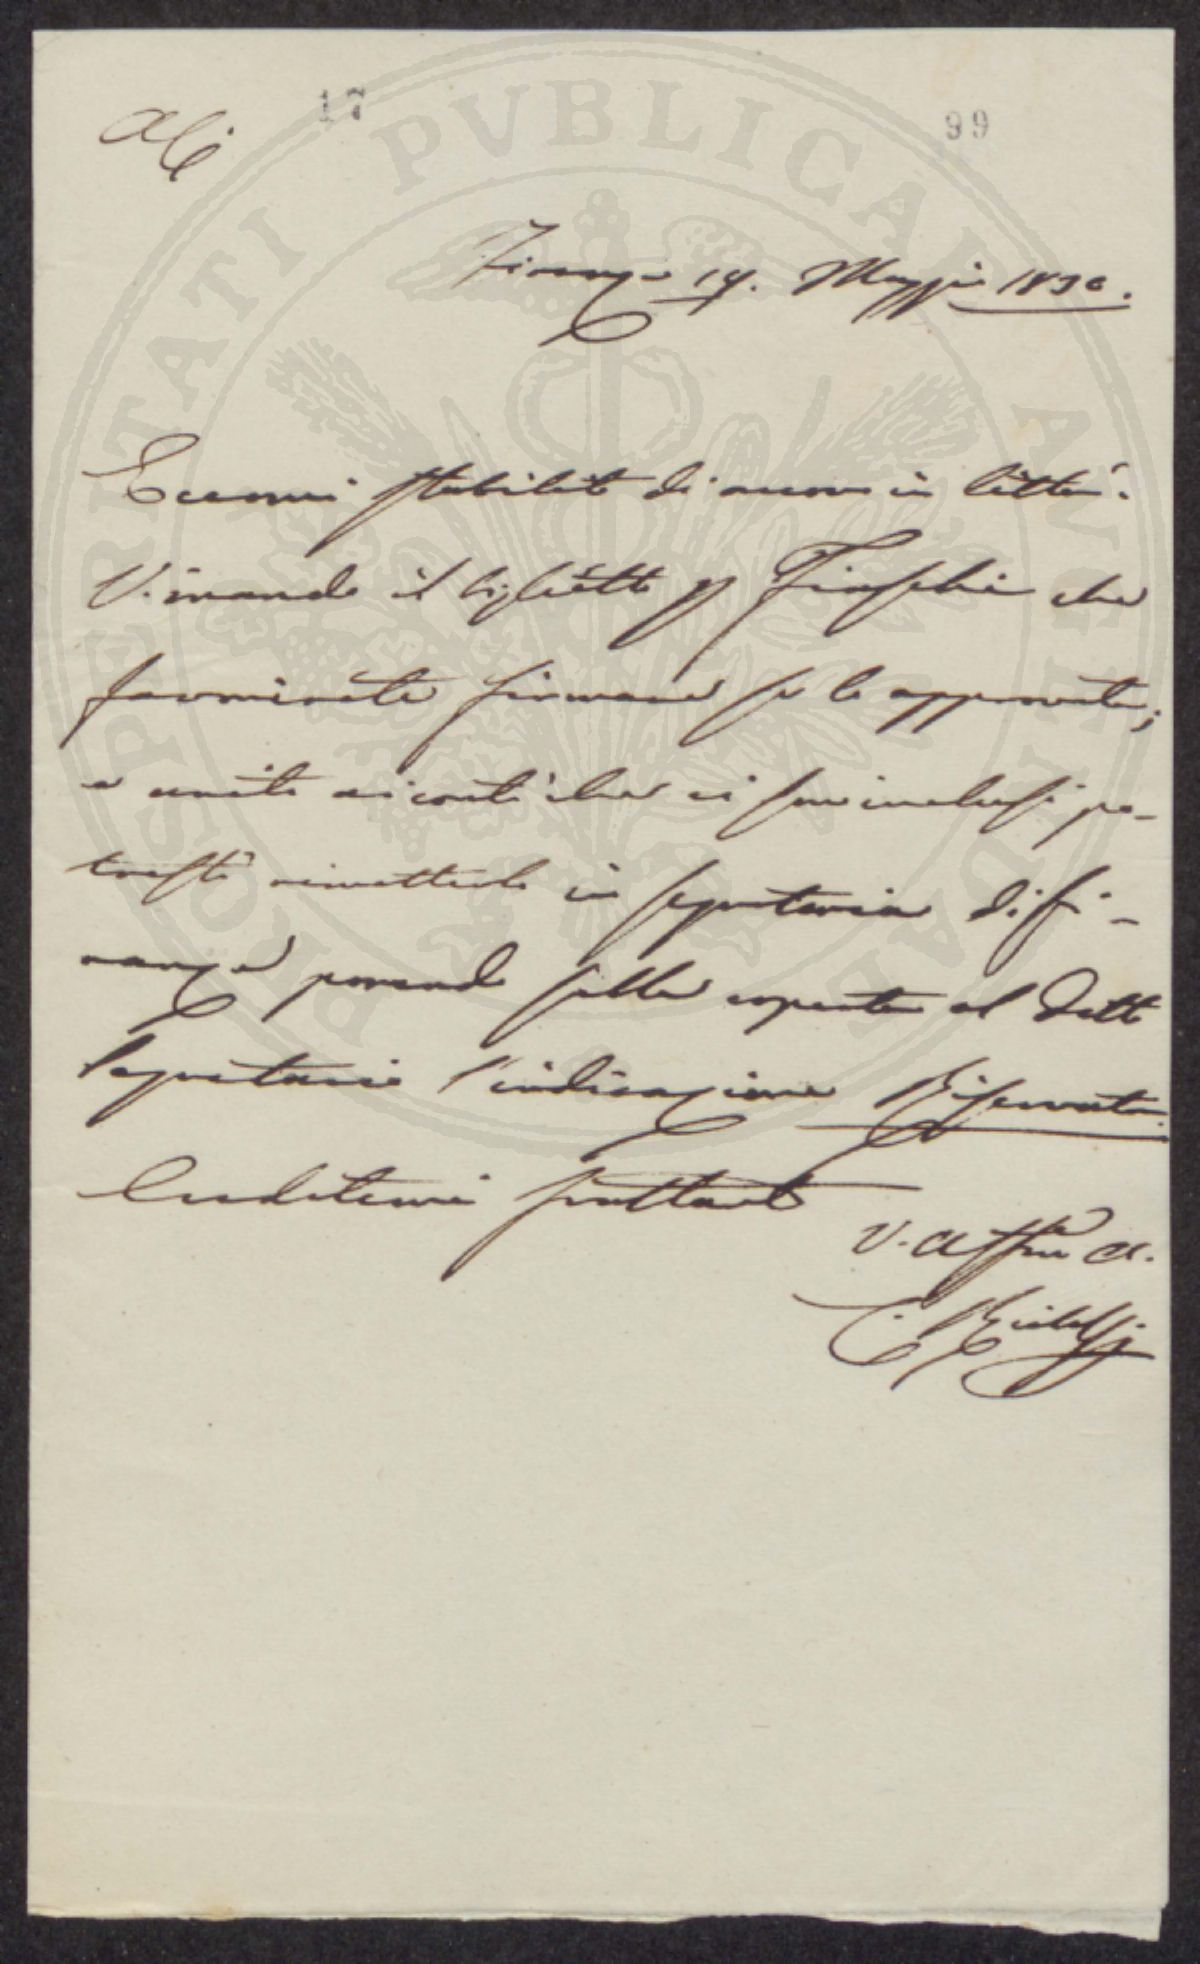 17
99
A C
Firenze 19. Maggio 1830.
Eccomi stabilito di nuovo in Città.
Vi mando il biglietto p Fiaschi che
favorirete firmare se lo approvate;
e unito ai conti che vi son inclusi po-
treste rimetterlo in segreteria di fi-
nanze ponendo sulla coperta al detto
Segretario l'indicazione Riservata.
Credetemi frattanto
V. Affmo A.
C. Ridolfi
PROSPERITATI PVBLICAE AVGENDAE